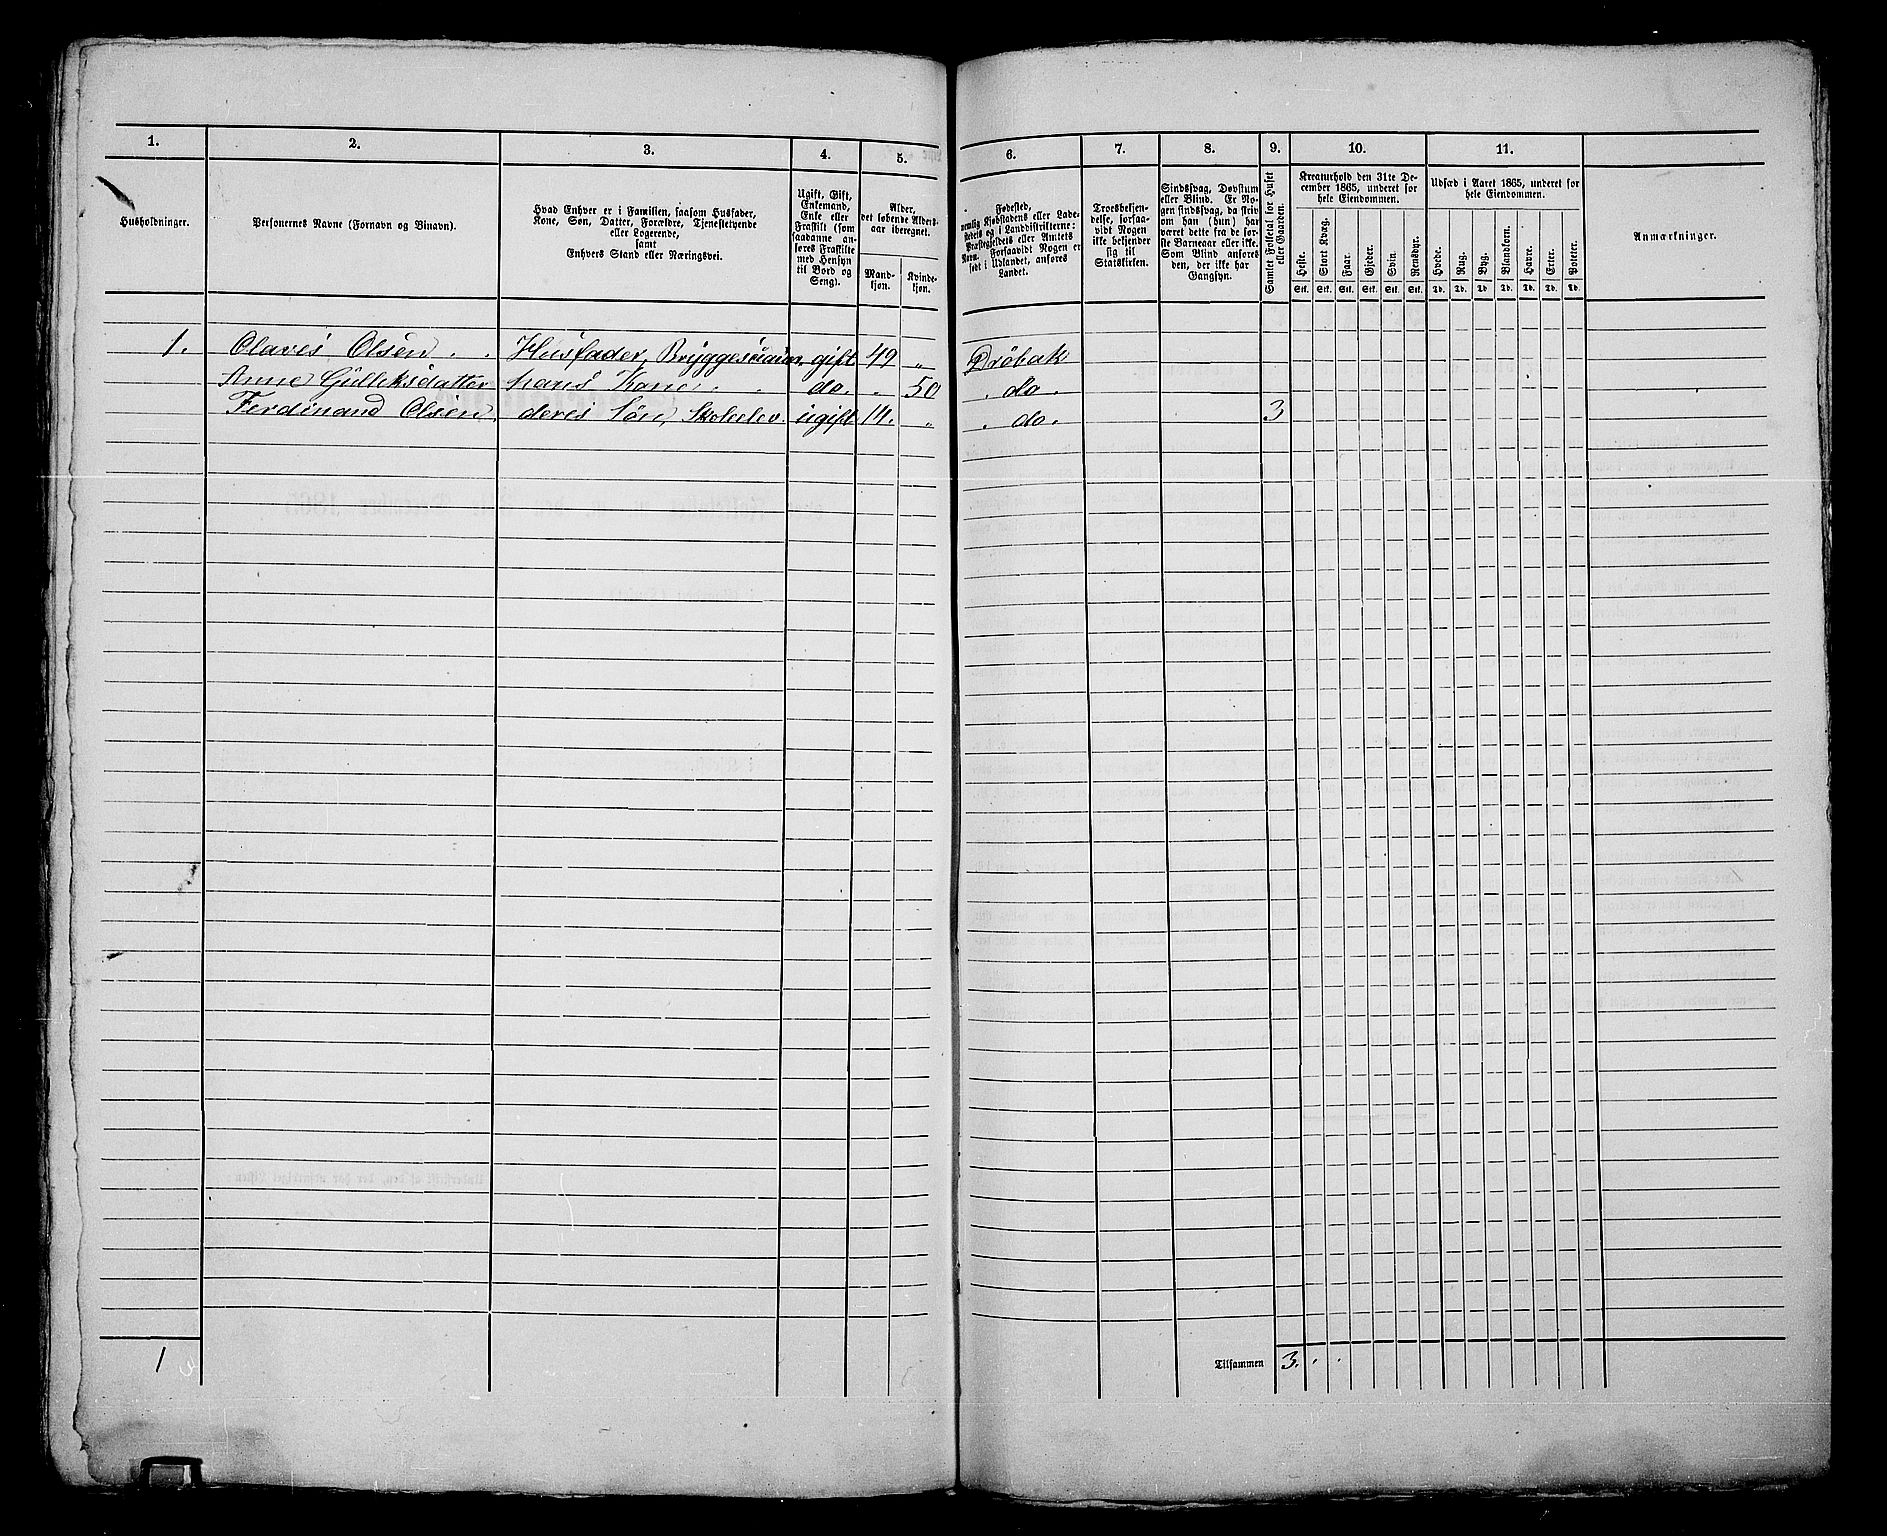 1. 2. 3. 4. 5. 6. 7. 8. 9. 10. 11.
Husholdninger.
Personernes Navne (Fornavn og Binavn).
Hvad Enhver er i Familien, saasom Husfader,
Kone, Søn, Datter, Forældre, Tjenestetyende
eller Logerende,
samt
Enhvers Stand eller Næringsvei.
Ugift, Gift,
Enkemand,
Enke eller
Fraskilt (som
saadanne an-
føres Fraskilte
med Hensyn
til Bord og
Seng).
Alder,
det løbende Alders-
aar iberegnet.
Mand-
kjøn.
Kvinde-
kjøn.
Fødested,
nemlig Kjøbstadens eller Lade-
stedets og i Landdistrikterne:
Præstegjeldets eller Amtets
Navn. Forsaavidt Nogen er
født i Udlandet, anføres
Landet.
Troesbekjen-
delse, forsaa-
vidt Nogen
ikke bekjender
sig til
Statskirken.
Sindssvag, Døvstum
eller Blind. Er No-
gen sindssvag, da skriv
om han (hun) har
været dette fra de før-
ste Barneaar eller ikke.
Som Blind anføres
den, der ikke har
Gangsyn.
Samlet Folketal for Huset
eller Gaarden.
Kreaturhold den 31te De-
cember 1865, underet for
hele Eiendommen.
Heste. Stort Kvæg. Faar. Gjeder. Svin. Rensdyr.
Stk. Stk. Stk. Stk. Stk. Stk.
Udsæd i Aaret 1865, underet for
hele Eiendommen.
Hvede. Rug. Byg. Blandkorn. Havre. Erter. Poteter.
Td. Td. Td. Td. Td. Td. Td.
Anmærkninger.
1. Olaves Olsen . . Husfader, gift 49 „ Drøbak
Anne Gulleksdatter hans Kone . . do. „ 50 . do .
Ferdinand Olsen . deres Søn, Skoleelev. ugift 14. „ . do . 3
1 Tilsammen 3. . .